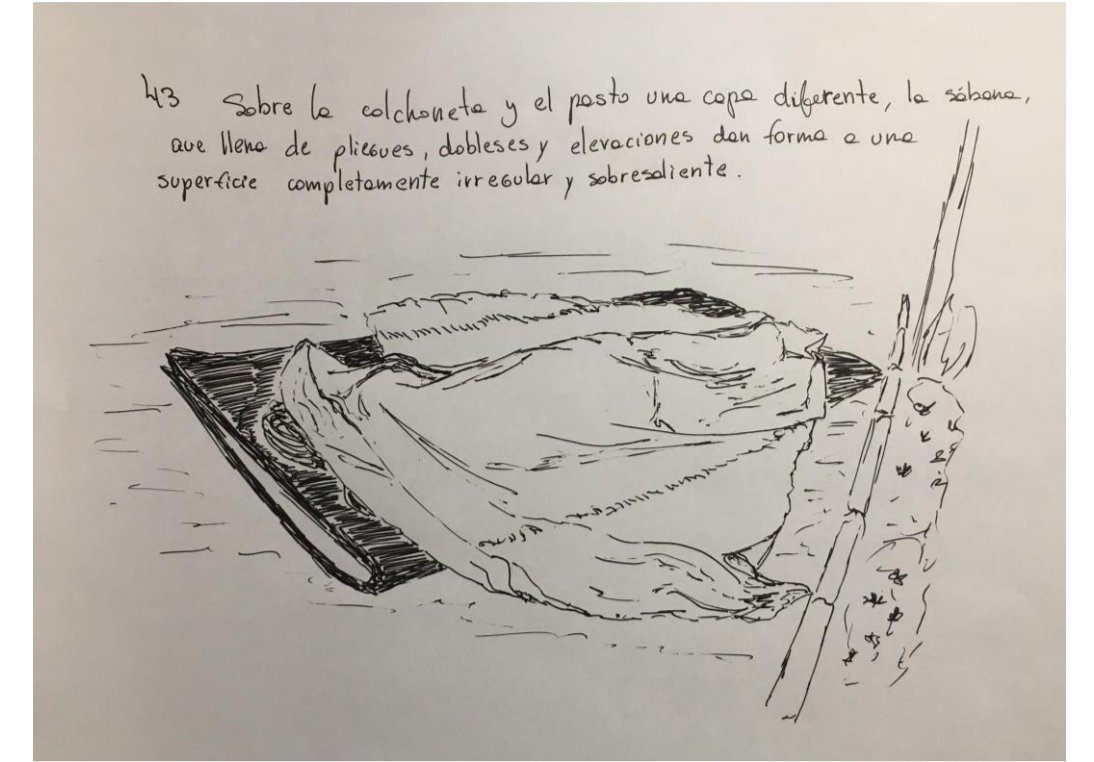 43 Sobre la colchoneta y el pasto una capa diferente, la sábana,
que llena de pliegues, dobleses y elevaciones dan forma a una
superficie completamente irregular y sobresaliente.